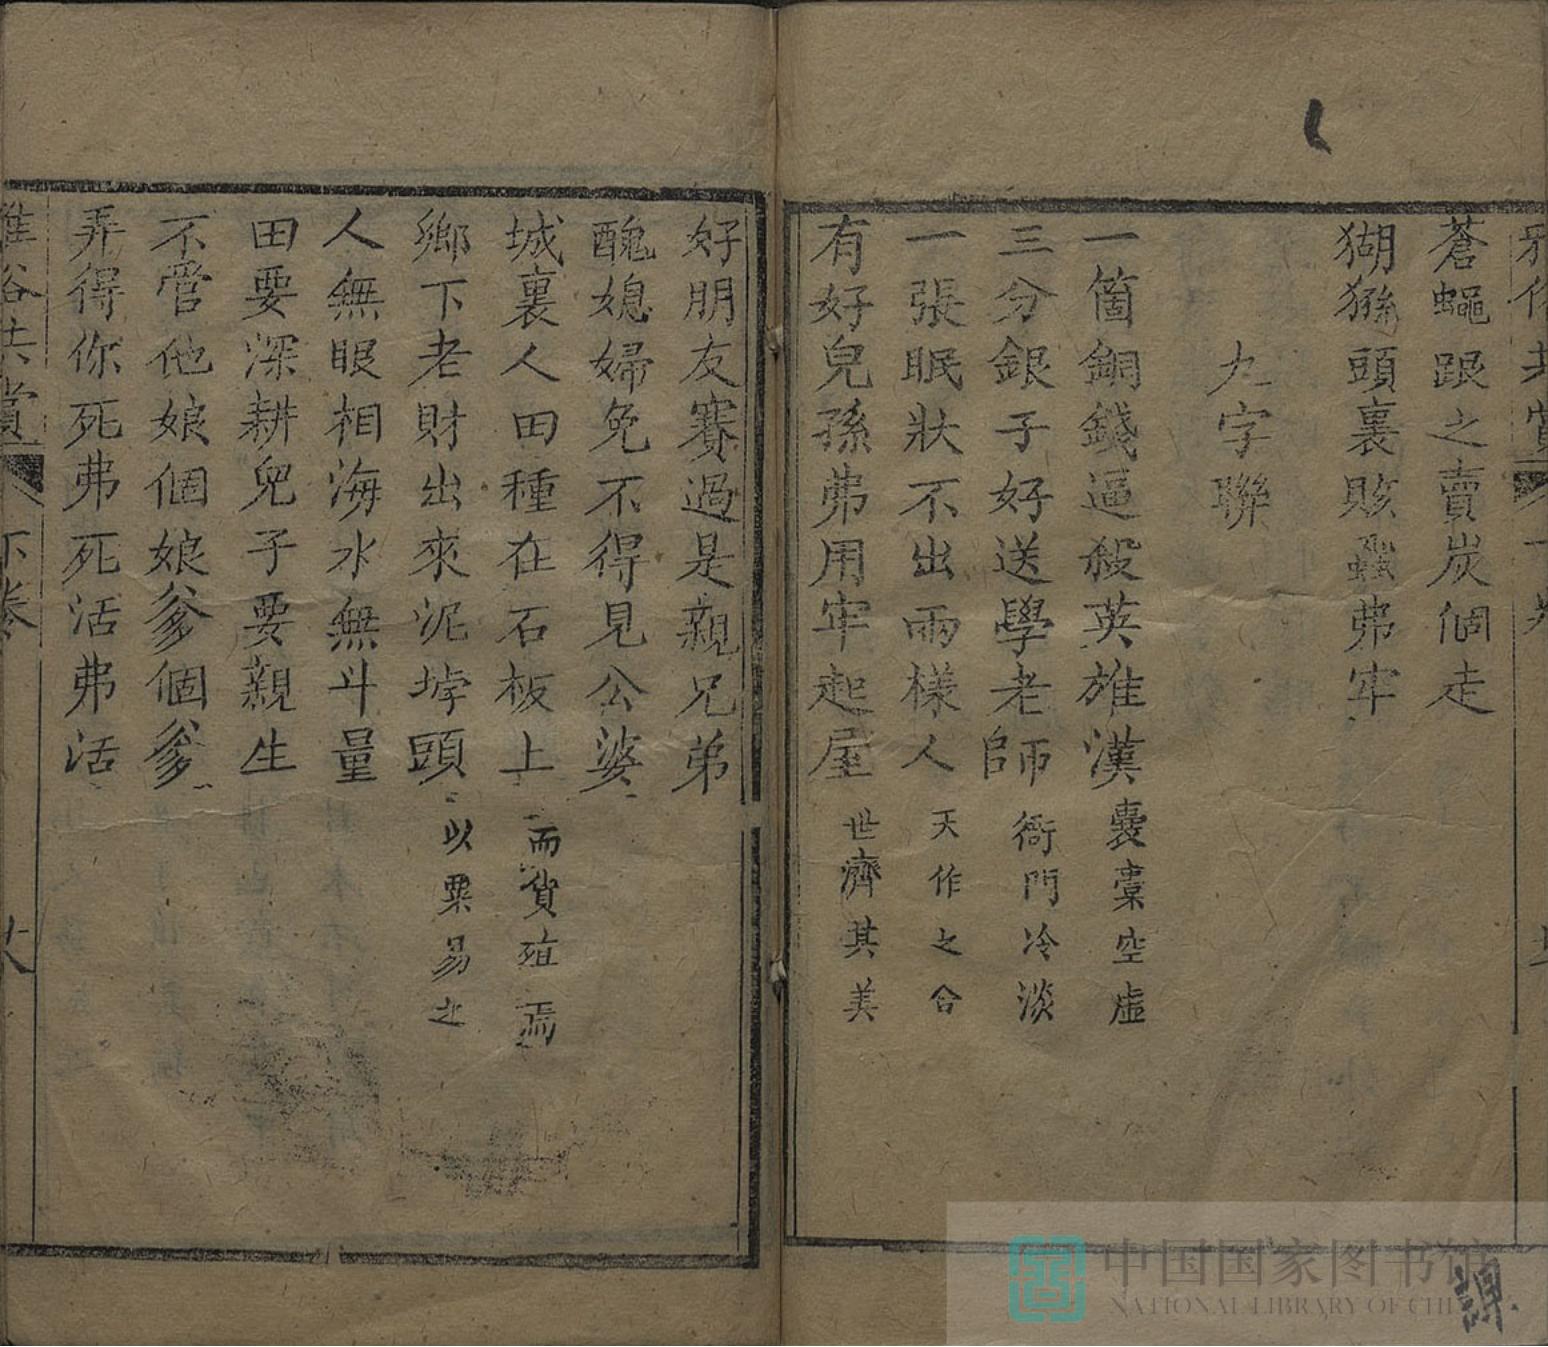 蒼蠅跟之賣炭個走
猢猻頭裏賅蝨弗牢
九字聯
一箇銅錢逼殺英雄漢 囊橐空虛
三分銀子好送學老師 衙門冷淡
一張眠牀不出兩樣人 天作之合
有好兒孫弗用牢起屋 世濟其美
好朋友賽過是親兄弟
醜媳婦免不得見公婆
城裏人田種在石板上 而貨殖焉
鄉下老財出來泥垶頭 以粟易之
人無眼相海水無斗量
田要深耕兒子要親生
不管他娘個娘爹個爹
弄得你死弗死活弗活
雅俗共賞 下卷
中国国家图书馆
NATIONAL LIBRARY OF CHI